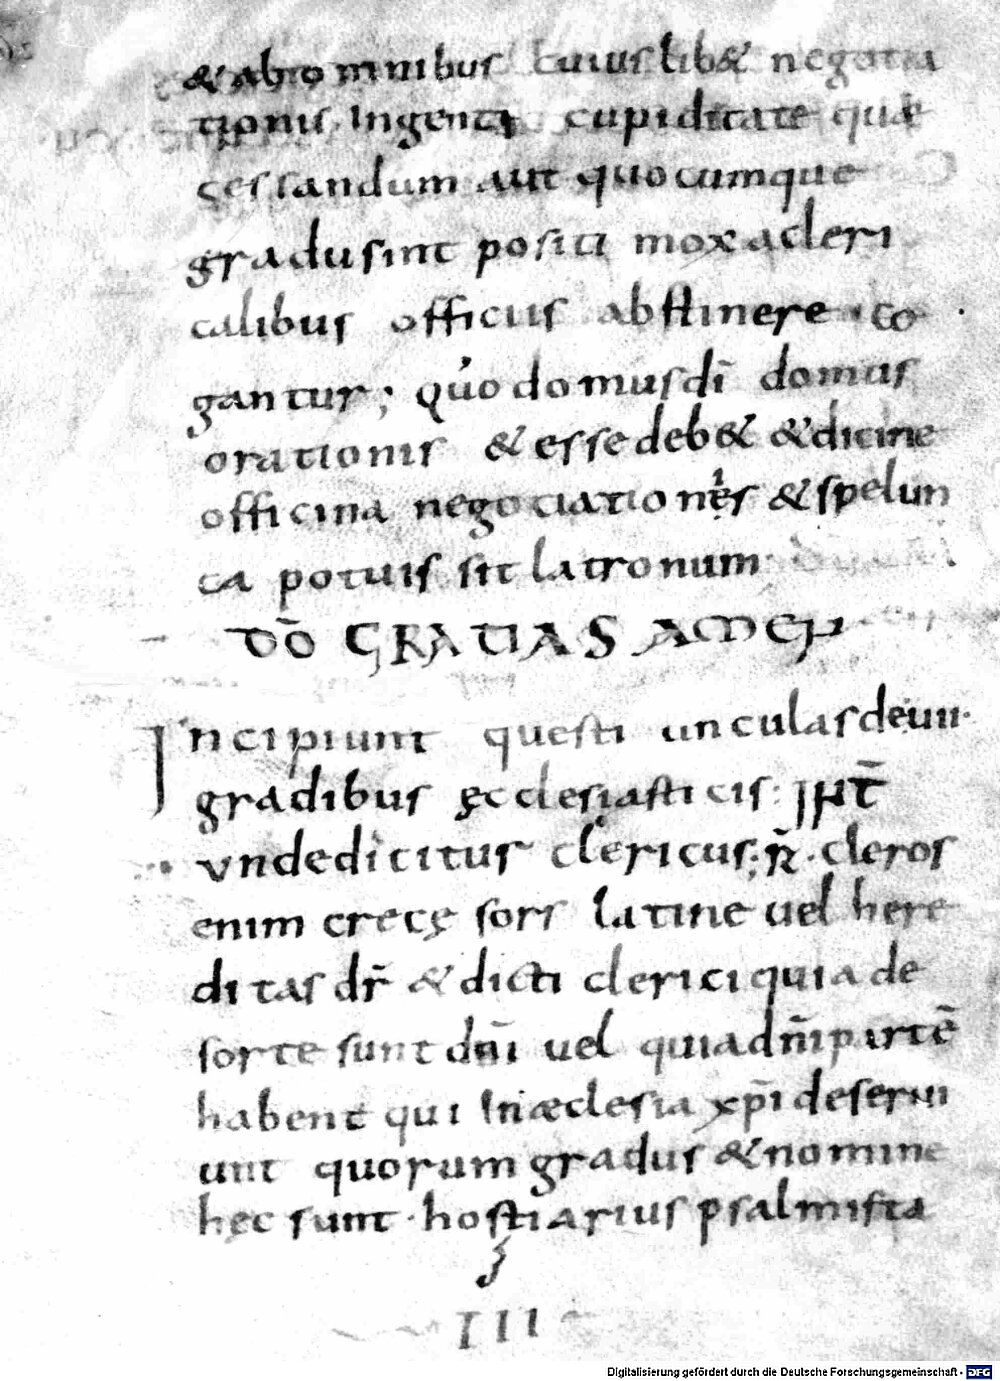 & ab omnibus cuiuslib& negotia
tionis Ingenti cupiditate quae
cessandum aut quocumque
gradu sint positi mox a cleri
calibus officiis abstinere co
gantur; quo domus dī domus
orationis & esse deb& & dicine
officina negociationes & spelun
ca potuis sit latronum
DŌ GRATIAS AMEN
Incipiunt questiunculas de uii·
gradibus ęcclesiasticis: INT̄
vnde dicitus clericus; R̄· cleros
enim crecę sors latine uel here
ditas dr̄ & dicti clerici quia de
sorte sunt dn̄i uel quia dn̄m partē
habent qui In aeclesia xp̄i deserui
unt quorum gradus & nomine
hęc sunt· hostiarius psalmista
III
Digitalisierung gefördert durch die Deutsche Forschungsgemeinschaft - DFG